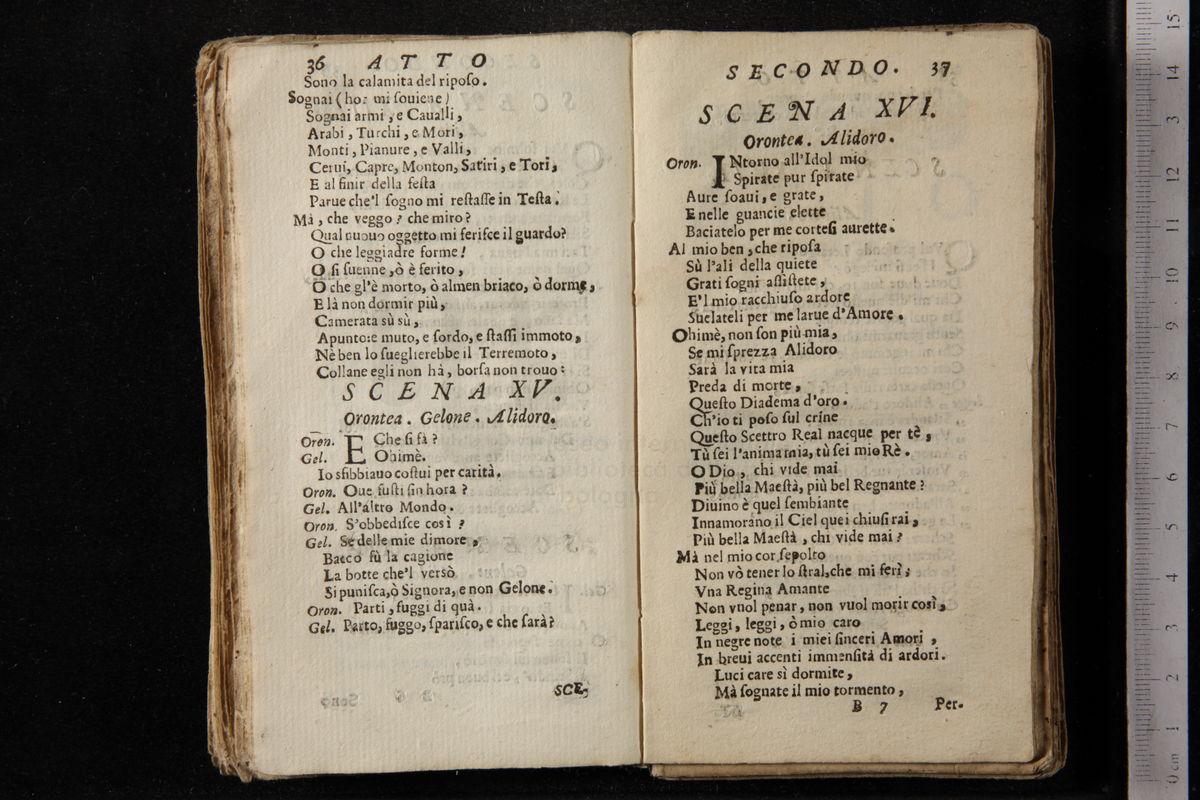 36 ATTO
Sono la calamita del riposo.
Sognai (hor mi souiene)
Sognai armi, e Caualli,
Arabi, Turchi, e Mori,
Monti, Pianure, e Valli,
Cerui, Capre, Monton, Satiri, e Tori,
E al finir della festa
Parue che'l sogno mi restasse in Testa.
Mà, che veggo? che miro?
Qual nuouo oggetto mi ferisce il guardo?
O che leggiadre forme!
O si suenne, ò è ferito,
O che gl'è morto, ò almen briaco, ò dorme,
E là non dormir più,
Camerata sù sù,
Apunto: e muto, e sordo, e stassi immoto,
Nè ben lo sueglierebbe il Terremoto,
Collane egli non hà, borsa non trouo:
SCENA XV.
Orontea. Gelone. Alidoro.
Oron. E Che si fà?
Gel. Ohimè.
Io sfibbiauo costui per carità.
Oron. Oue fusti sin hora?
Gel. All'altro Mondo.
Oron. S'obbedisce così?
Gel. Se delle mie dimore,
Bacco fù la cagione
La botte che'l versò
Si punisca, ò Signora, e non Gelone.
Oron. Parti, fuggi di quà.
Gel. Parto, fuggo, sparisco, e che sarà?
SCE,
SECONDO. 37
SCENA XVI.
Orontea. Alidoro.
Oron. INtorno all'Idol mio
Spirate pur spirate
Aure soaui, e grate,
E nelle guancie elette
Baciatelo per me cortesi aurette.
Al mio ben, che riposa
Sù l'ali della quiete
Grati sogni assistete,
E'l mio racchiuso ardore
Suelateli per me larue d'Amore.
Ohimè, non son più mia,
Se mi sprezza Alidoro
Sarà la vita mia
Preda di morte,
Questo Diadema d'oro.
Ch'io ti poso sul crine
Questo Scettro Real nacque per tè,
Tù sei l'anima mia, tù sei mio Rè.
O Dio, chi vide mai
Più bella Maestà, più bel Regnante?
Diuino è quel sembiante
Innamorano il Ciel quei chiusi rai,
Più bella Maestà, chi vide mai?
Mà nel mio cor sepolto
Non vò tener lo stral, che mi ferì;
Vna Regina Amante
Non vuol penar, non vuol morir così,
Leggi, leggi, ò mio caro
In negre note i miei sinceri Amori,
In breui accenti immensità di ardori.
Luci care sì dormite,
Mà sognate il mio tormento,
B 7 Per-
15
14
13
12
11
10
9
8
7
6
5
4
3
2
1
0 cm